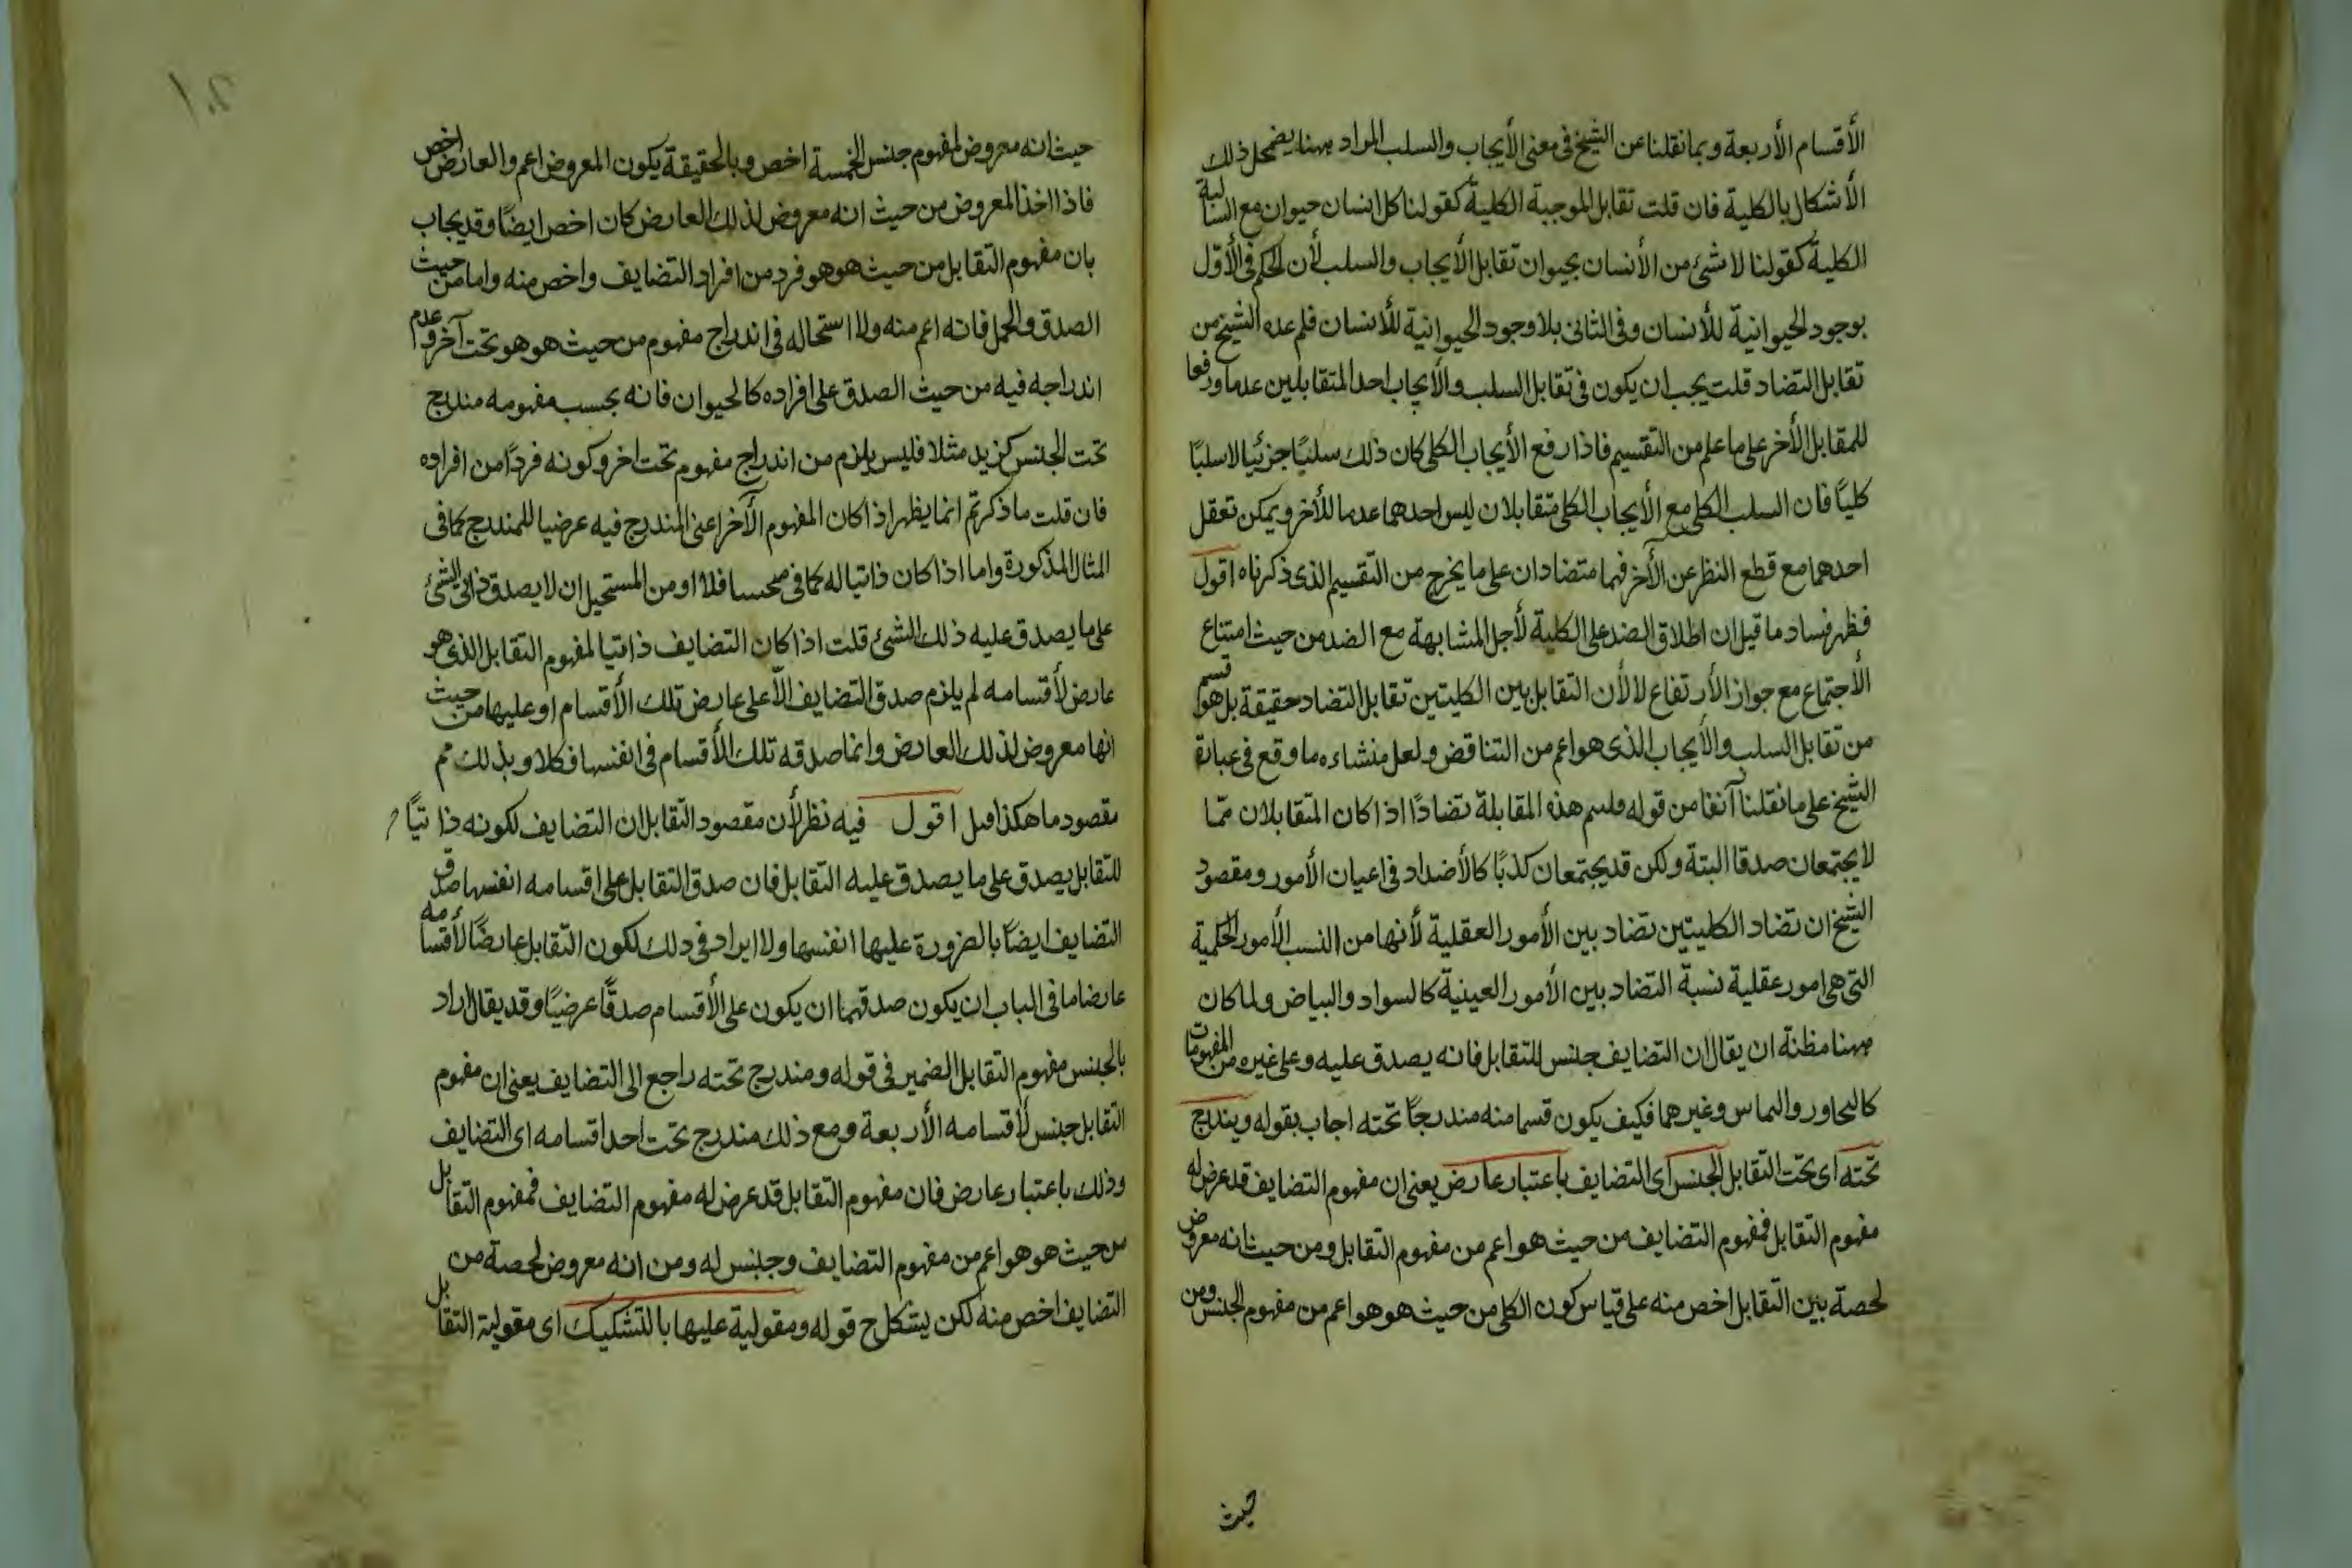 الأقسام الأربعة وبما نقلنا عن الشيخ فى معنى الأيجاب والسلب المراد ههنا يضمحل ذلك
الأشكال بالكلية فان قلت تقابل الموجبة الكلية كقولنا كل انسان حيوان مع السالبة
الكلية كقولنا لا شئ من الأنسان بحيوان تقابل الأيجاب والسلب لأن الحكم فى الأول
بوجود الحيوانية للأنسان وفى الثانى بلا وجود الحيوانية للأنسان فلم عده الشيخ من
تقابل التضاد قلت يجب ان يكون فى تقابل السلب والأيجاب احد المتقابلين عدما ورفعا
للمقابل الأخر على ما علم من التقسيم فاذا رفع الأيجاب الكلى كان ذلك سلبيًا جزئيا لا سلبًا
كليًا فان السلب الكلى مع الأيجاب الكلى متقابلان ليس احدهما عدما للأخر ويمكن تعقل
احدهما مع قطع النظر عن الأخر فهما متضادان على ما يخرج من التقسيم الذى ذكرناه اقول
فظهر فساد ما قيل ان اطلاق الضد على الكلية لأجل المشابهة مع الضد من حيث امتناع
الأجتماع مع جواز الأرتفاع لا لأن التقابل بين الكليتين تقابل التضاد حقيقة بل هو قسم
من تقابل السلب والأيجاب الذى هو اعم من التناقض ولعل منشاءه ما وقع فى عبارة
الشيخ على ما نقلنا آنفا من قوله فلسم هذه المقابلة تضادًا اذا كان المتقابلان مما
لا يجتمعان صدقا البتة ولكن قد يجتمعان كذبًا كالأضداد فى اعيان الأمور ومقصود
الشيخ ان تضاد الكليتين تضاد بين الأمور العقلية لأنها من النسب الأمور الحكمية
التى هى امور عقلية نسبة التضاد بين الأمور العينية كالسواد والبياض ولما كان
ههنا مظنة ان يقال ان التضايف جنس للتقابل فانه يصدق عليه وعلى غيره من المفهومات
كالتجاور والتماس وغيرهما فكيف يكون قسما منه مندرجًا تحته اجاب بقوله ويندرج
تحته اى تحت التقابل الجنس اى التضايف باعتبار عارض يعنى ان مفهوم التضايف قد عرض له
مفهوم التقابل فمفهوم التضايف من حيث هو اعم من مفهوم التقابل ومن حيث انه معروض
لحصة بين التقابل اخص منه على قياس كون الكلى من حيث هو هو اعم من مفهوم الجنس ومن
حيث
حيث انه معروض لمفهوم جنس الخمسة اخص وبالحقيقة يكون المعروض اعم والعارض اخص
فاذا اخذ المعروض من حيث انه معروض لذلك العارض كان اخص ايضًا وقد يجاب
بان مفهوم التقابل من حيث هو هو فرد من افراد التضايف واخص منه واما من حيث
الصدق والحمل فانه اعم منه ولا استحاله فى اندراج مفهوم من حيث هو هو تحت آخر وعدم
اندراجه فيه من حيث الصدق على افراده كالحيوان فانه بحسب مفهومه مندرج
تحت الجنس كزيد مثلا فليس يلزم من اندراج مفهوم تحت اخر وكونه فردًا من افراده
فان قلت ما ذكرتم انما يظهر اذا كان المفهوم الآخر اعنى المندرج فيه عرضيا للمندرج كما فى
المثال المذكورة واما اذا كان ذاتيا له كما فى فلا او من المستحيل ان لا يصدق ذاتى الشئ
على ما يصدق عليه ذلك الشئ قلت اذا كان التضايف ذاتيا لمفهوم التقابل الذى هو
عارض لأقسامه لم يلزم صدق التضايف الّا على عارض تلك الأقسام او عليها من حيث
انها معروض لذلك العارض وانما صدقه تلك الأقسام فى انفسها فكلا وبذلك تم
مقصود ما هكذا قيل اقول فيه نظر لأن مقصود التقابل ان التضايف لكونه ذاتيًا
للتقابل يصدق على ما يصدق عليه التقابل فان صدق التقابل على اقسامه انفسها صدق
التضايف ايضًا بالضرورة عليها انفسها ولا ايراد فى ذلك لكون التقابل عارضًا لأقسامه
عارضا ما فى الباب ان يكون صدقهما ان يكون على الأقسام صدقًا عرضيًا وقد يقال اراد
بالجنس مفهوم التقابل الضمير فى قوله ومندرج تحته راجع الى التضايف يعنى ان مفهوم
التقابل جنس لأقسامه الأربعة ومع ذلك مندرج تحت احد اقسامه اى التضايف
وذلك باعتبار عارض فان مفهوم التقابل قد عرض له مفهوم التضايف فمفهوم التقابل
من حيث هو هو اعم من مفهوم التضايف وجنس له ومن انه معروض لحصة من
التضايف اخص منه لكن يشكل ح قوله ومقولية عليها بالتشكيك اى مقولية التقابل